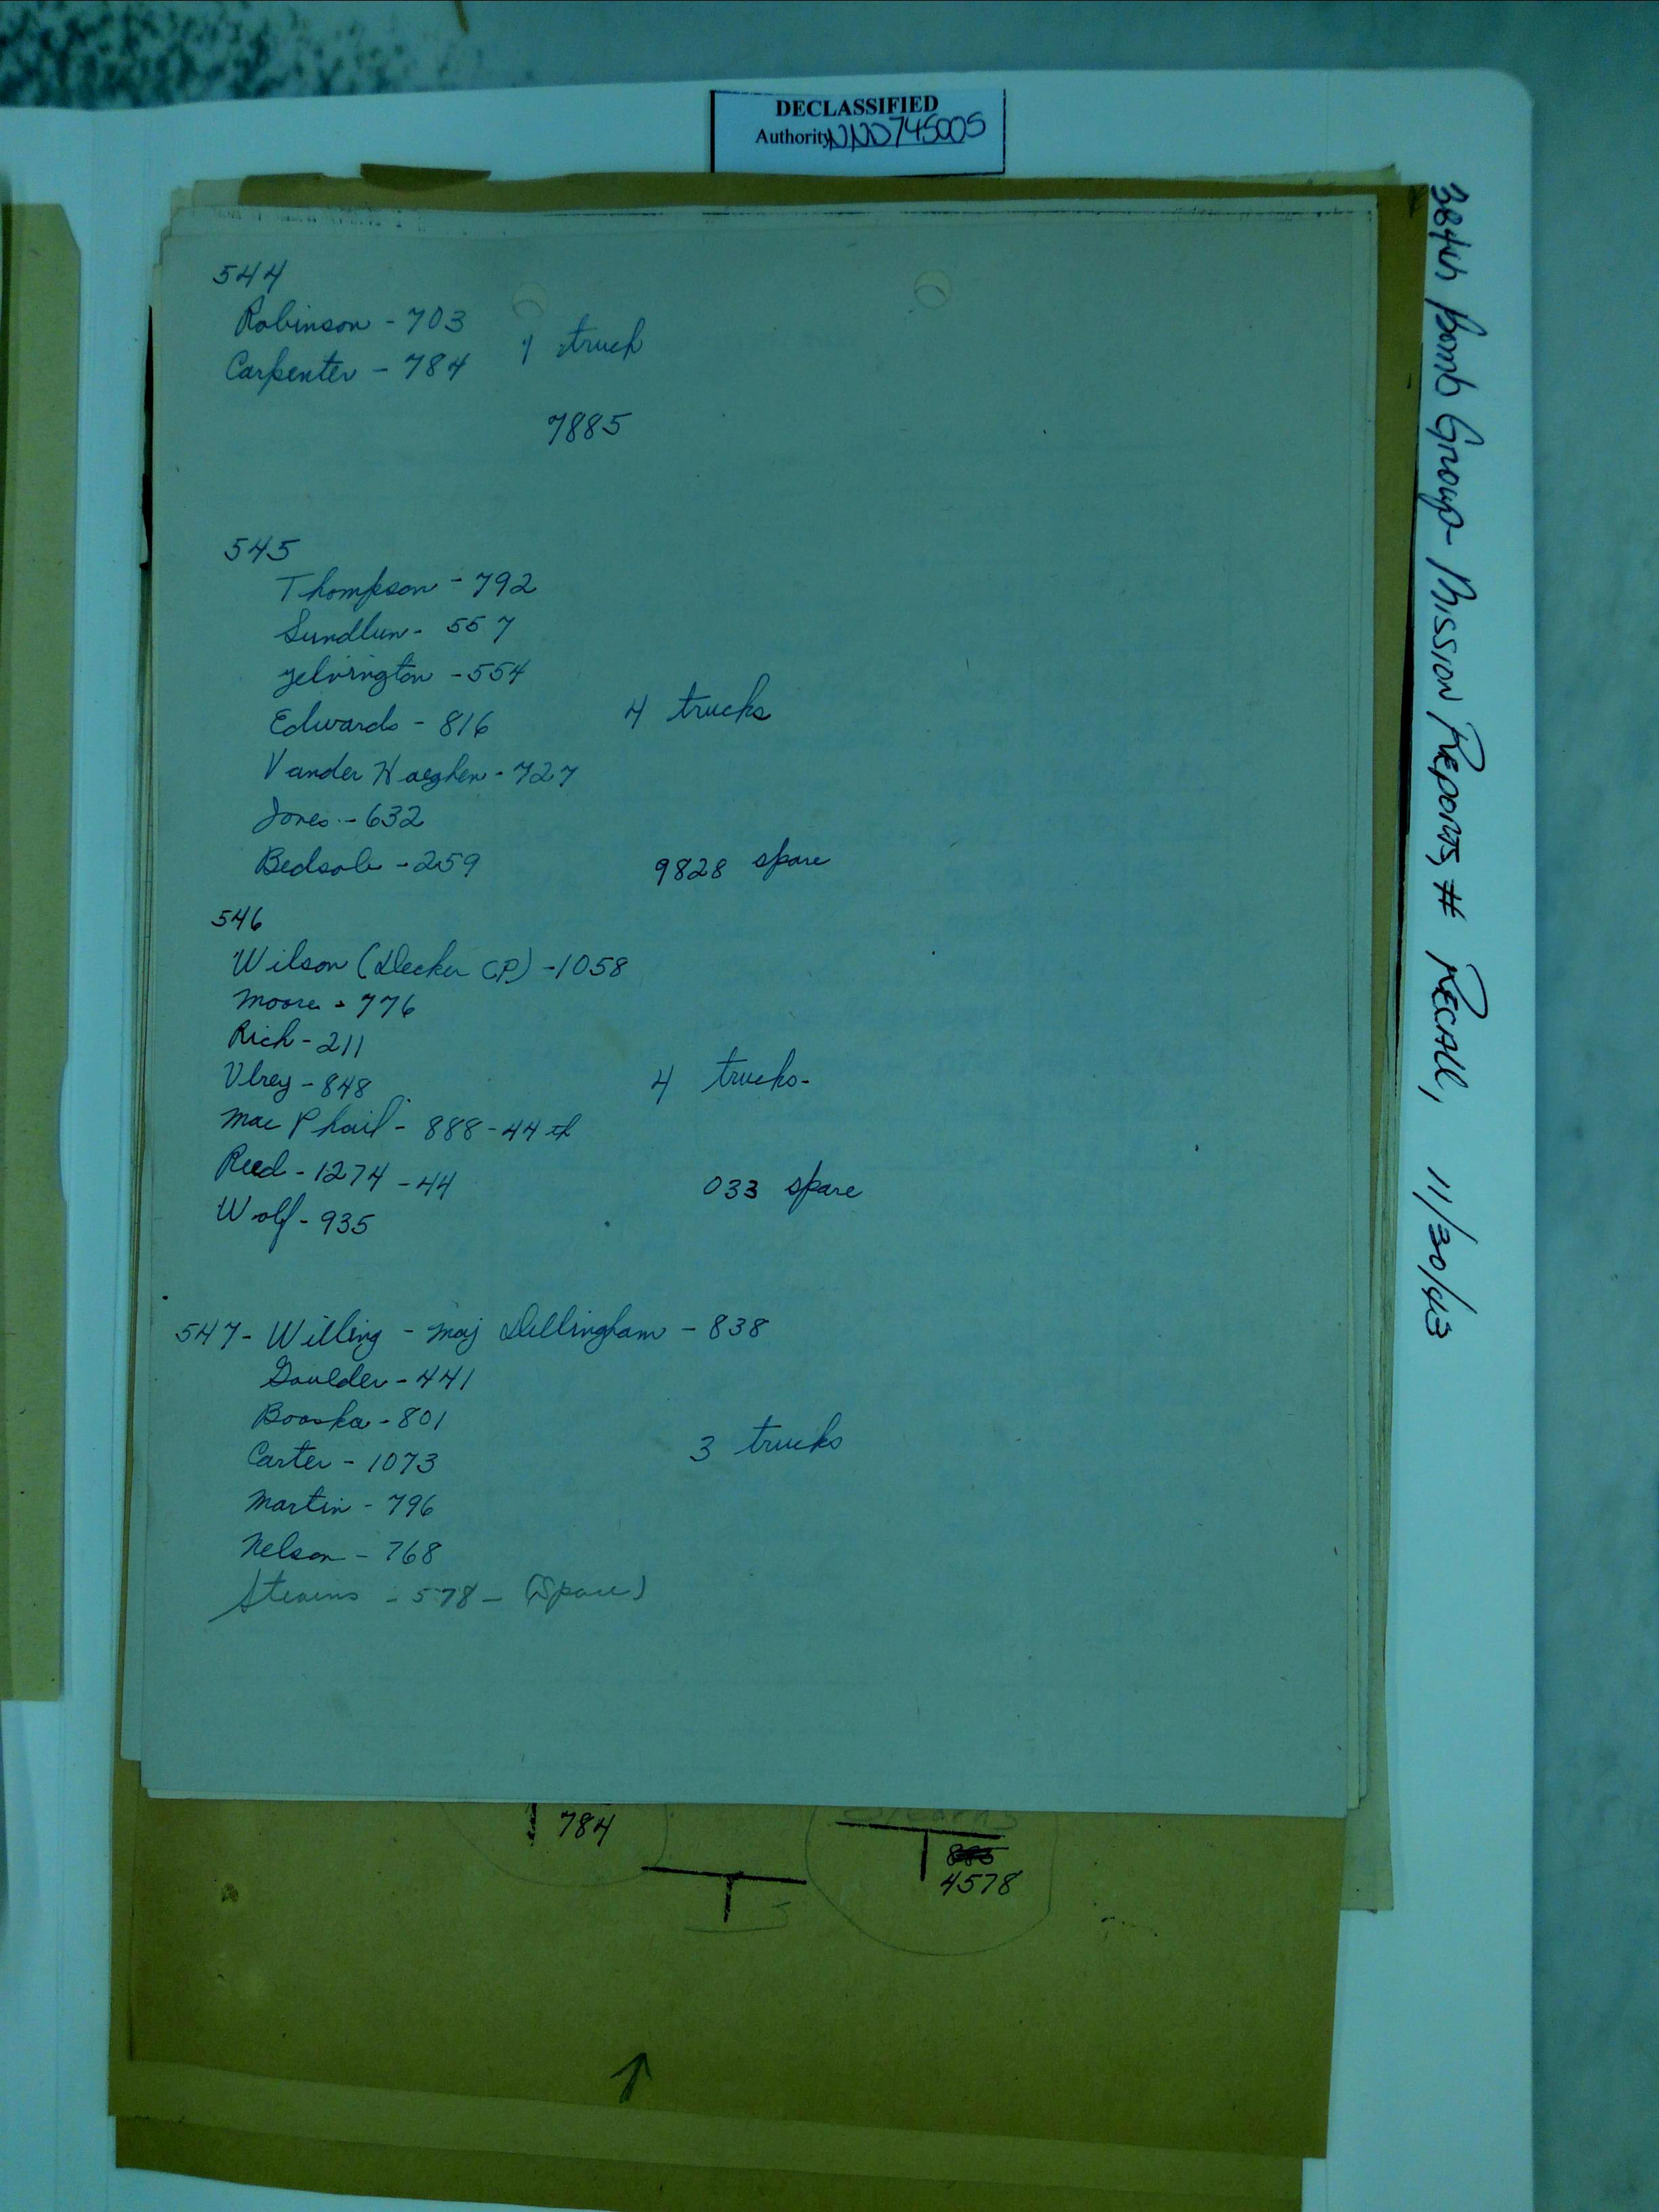 DECLASSIFIED
Authority NND745005
384th Bomb Group - Mission Reports, # RECALL, 11/30/43
544
Robinson - 703
Carpenter - 784
1 truck
7885
545
Thompson - 792
Sundlun - 557
Yelvington - 554
Edwards - 816
4 trucks
Vander Haeghen - 727
Jones - 632
Bedsole - 259
9828 spare
546
Wilson (Decker CP) - 1058
Moore - 776
Rich - 211
Ulrey - 848
4 trucks.
Mac Phail - 888 - 44th
Reed - 1274 - 44
033 spare
Wolf - 935
547 - Willing - Maj Dillingham - 838
Goulder - 441
Booska - 801
Carter - 1073
3 trucks
Martin - 796
Nelson - 768
Stearns - 578 - (Spare)
784
Stearns
4578